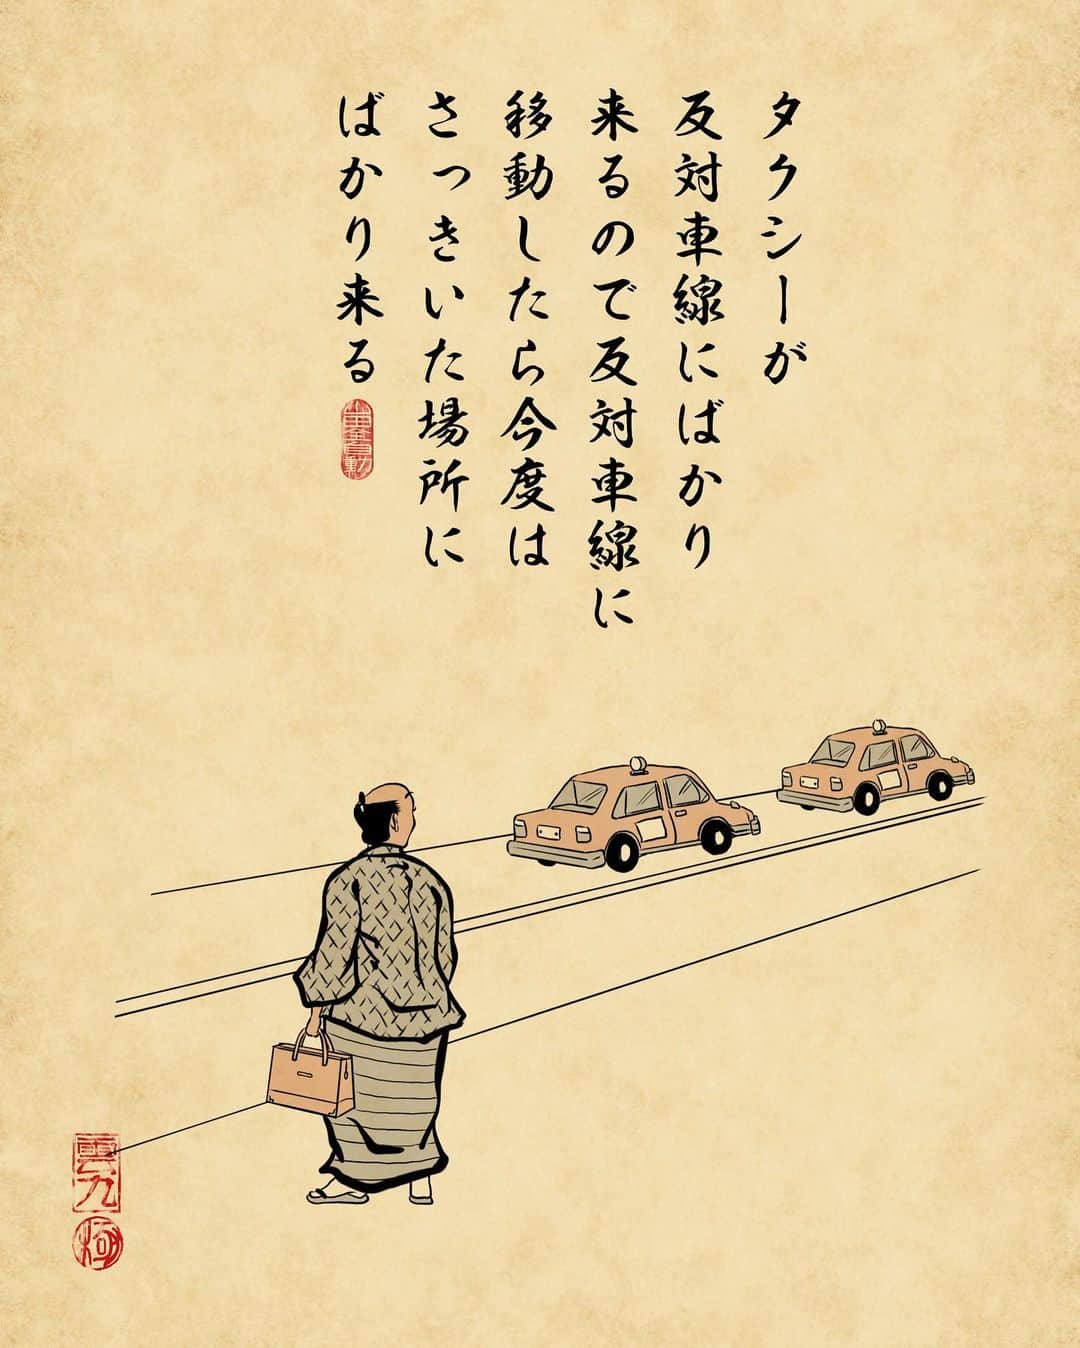 タクシーが
反対車線にばかり
来るので反対車線に
移動したら今度は
さっきいた場所に
ばかり来る
雲九